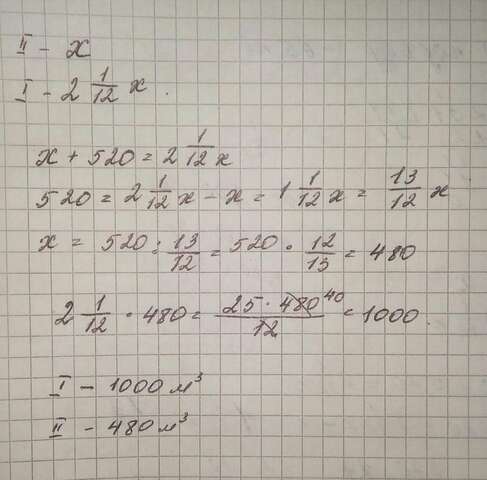 II - x
I - 2 1/12 x.
x + 520 = 2 1/12 x
520 = 2 1/12 x - x = 1 1/12 x = 13/12 x
x = 520 : 13/12 = 520 · 12/13 = 480
2 1/12 · 480 = 25 · 480 40 / 12 = 1000
I - 1000 м³
II - 480 м³